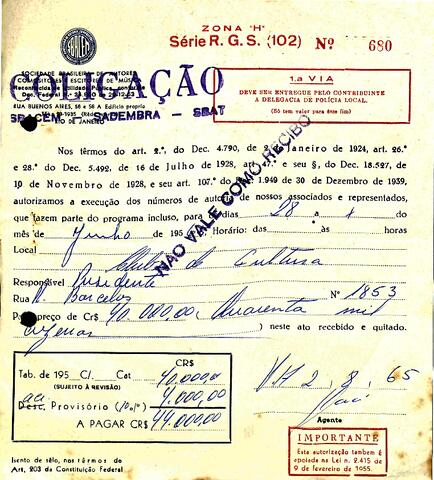 ZONA "H"
Série R. G. S. (102) Nº 680
SBACEM
SOCIEDADE BRASILEIRA DE AUTORES
COMPOSITORES E ESCRITORES DE MÚSICA
COLIGAÇÃO
RUA BUENOS AIRES, 58 Edifício próprio
SBACEM - SADEMBRA - SBAT
RIO DE JANEIRO
1.a VIA
DEVE SER ENTREGUE PELO CONTRIBUINTE
A DELEGACIA DE POLÍCIA LOCAL.
(Só tem valor para êsse fim)
NÃO VALE COMO RECIBO
Nos têrmos do art. 2.º Dec. 4.790, de 2 Janeiro de 1924, art. 26.º
e 28.º do Dec. 5.492, de 16 de Julho de 1928, art. 47.º e seu §, do Dec. 18.527, de
10 de Novembro de 1928, e seu art. 107.º do 1.949 de 30 de Dezembro de 1939,
autorizamos a execução dos números de autoria de nossos associados e representados,
que fazem parte do programa incluso, para dias 28 a x do
mês de Junho de 195 Horário: das às horas
Local Clube de Cultura
Responsável Presidente
Rua R. Barcelos Nº 1853
Pôr preço de Cr$ 40.000,00 Quarenta mil
neste ato recebido e quitado.
CR$
Tab. de 195 C/. Cat 40.000,00
(SUJEITO À REVISÃO)
Desc. Provisório (10%) 4.000,00
A PAGAR CR$ 44.000,00
2, 8, 65
Agente
IMPORTANTE
Esta autorização também é
apoiada na Lei n. 2.415 de
9 de fevereiro de 1955.
Isento de sêlo, nos têrmos do
Art. 203 da Constituição Federal